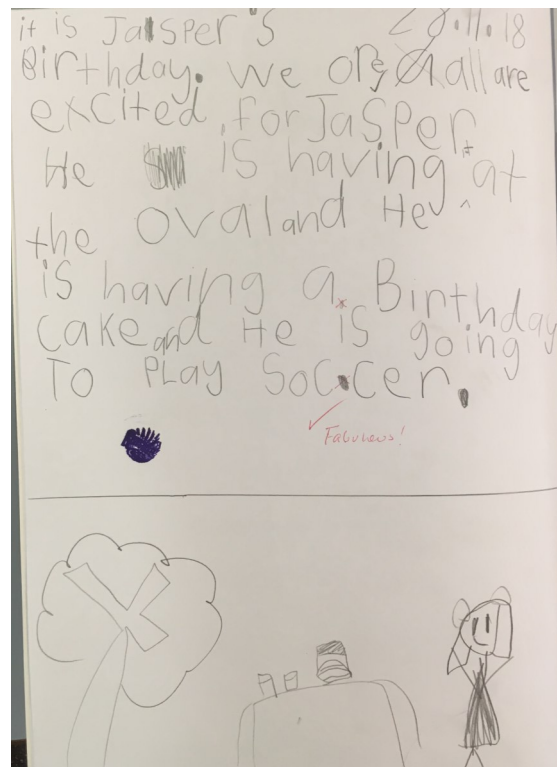 it is Jasper's 28.11.18
Birthday. We are all are
excited for Jasper
He is having it at
the oval and He
is having a Birthday
cake and He is going
To PLay Soccer.
Fabulous!